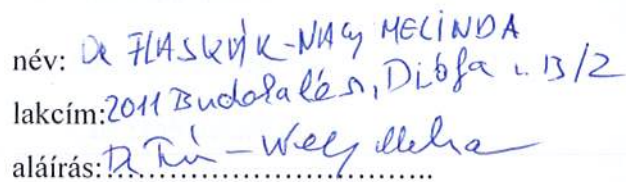 név: Dr FLASKÁR-NAGY MELINDA
lakcím: 2011 Budakalász, Diófa u. 13/2
aláírás: